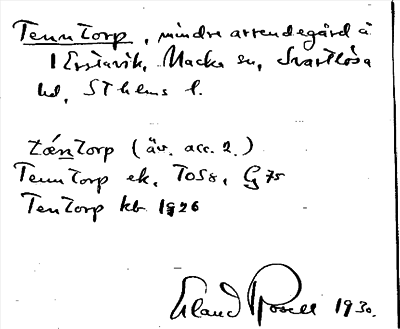 Tenntorp, mindre arrendegård å
1 Erstavik, Nacka sn, Svartlösa
hd, Sthlms l.
tæ̀ntorp (äv. acc. 2.)
Tenntorp ek, TOS8, G 75
Tentorp kb 1926
Erland Rosell 1930.